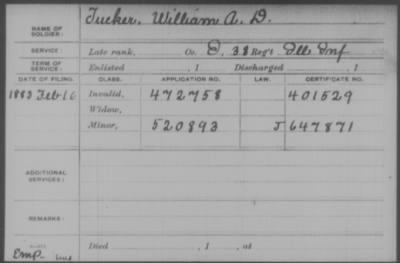 NAME OF SOLDIER: Tucker, William A. D.
SERVICE: Late rank, Co. D, 38 Reg't Ills Inf
TERM OF SERVICE: Enlisted , 1 Discharged , 1
DATE OF FILING. CLASS. APPLICATION NO. LAW. CERTIFICATE NO.
1883 Feb 16 Invalid, 472758 401529
Widow,
Minor, 520893 J 647871
ADDITIONAL SERVICES:
REMARKS:
Died , 1 , at